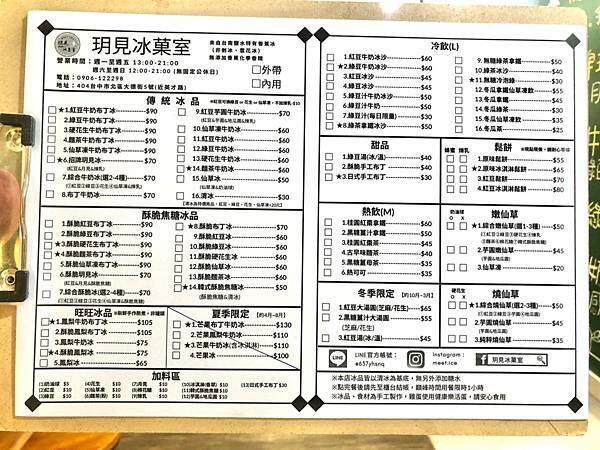 玥見冰菓室
來自台南鹽水特有香蕉冰
(非剉冰、雪花冰)
無添加香蕉化學香精
營業時間：週一至週五 13:00-21:00
週六至週日 12:00-21:00 (無固定公休日)
電話：0906-122298
地址：404台中市北區大德街5號(近英才路)
□外帶
□內用
傳統冰品
★1.紅豆牛奶布丁冰 $90
2.綠豆牛奶布丁冰 $90
3.硬花生牛奶布丁冰 $90
4.麵茶牛奶布丁冰 $90
5.仙草凍牛奶布丁冰 $90
★6.招牌玥見冰 $70
(紅豆&月見&煉乳)
7.綜合牛奶冰(選2-4種) $70
8.布丁牛奶冰 $70
9.紅豆芋圓牛奶冰 $70
(紅豆&芋圓&地瓜圓&煉乳)
10.仙草凍牛奶冰 $60
11.紅豆牛奶冰 $60
12.綠豆牛奶冰 $60
13.硬花生牛奶冰 $60
★14.麵茶牛奶冰 $60
15.仙草冰 $50
(仙草凍&奶油球)
16.清冰 $30
酥脆焦糖冰品
1.酥脆紅豆布丁冰 $90
2.酥脆綠豆布丁冰 $90
★3.酥脆硬花生布丁冰 $90
4.酥脆麵茶布丁冰 $90
5.酥脆仙草凍布丁冰 $90
6.酥脆玥見冰 $70
(紅豆&月見&酥脆焦糖)
7.綜合酥脆冰(選2-4種) $70
★8.酥脆布丁冰 $70
9.酥脆紅豆冰 $60
10.酥脆綠豆冰 $60
11.酥脆硬花生冰 $60
12.酥脆仙草凍冰 $60
13.酥脆麵茶冰 $60
★14.韓式酥脆焦糖冰 $50
(酥脆焦糖&清冰)
旺旺冰品
1.鳳梨牛奶布丁冰 $105
2.酥脆鳳梨布丁冰 $105
★3.鳳梨牛奶冰 $75
★4.酥脆鳳梨冰 $75
5.鳳梨冰 $65
夏季限定 【約4月~8月】
★1.芒果布丁牛奶冰 $130
2.芒果鳳梨牛奶冰 $110
★3.芒果牛奶冰(含冰淇淋) $110
4.芒果冰 $100
加料區
(1)奶油球 $5
(2)紅豆 $10
(3)綠豆 $10
(4)花生 $10
(5)仙草凍 $10
(6)麵茶(粉) $10
(7)月見 $10
(8)棉花糖 $10
(9)煉乳 $10
(10)冰淇淋(香草) $10
(11)韓式酥脆焦糖 $10
(12)芋圓&地瓜圓 $10
(13)日式手工布丁 $30
冷飲(L)
1.紅豆牛奶冰沙 $65
★2.綠豆牛奶冰沙 $65
3.紅豆冰沙 $45
4.綠豆冰沙 $45
5.綠豆汁牛奶冰沙 $50
6.綠豆汁牛奶 $50
7.綠豆汁(每日限量) $30
★8.綠茶拿鐵冰沙 $50
9.無糖綠茶拿鐵 $50
10.綠茶冰沙 $40
★11.無糖冷泡綠茶 $30
12.冬瓜拿鐵仙草凍飲 $55
13.冬瓜拿鐵 $45
14.冬瓜綠茶 $30
★15.冬瓜仙草凍飲 $35
16.冬瓜茶 $25
甜品
1.綠豆湯(冰/溫) $40
2.酥脆手工布丁 $40
★3.日式手工布丁 $30
蜂蜜 煉乳
鬆餅
★1.原味鬆餅 $55
★2.原味冰淇淋鬆餅 $65
★3.紅豆鬆餅 $70
4.紅豆冰淇淋鬆餅 $80
熱飲(M)
1.桂圓紅棗拿鐵 $60
2.黑糖薑汁拿鐵 $50
3.桂圓紅棗茶 $45
4.古早味麵茶 $40
5.黑糖薑母茶 $35
6.熱可可 $35
奶油球
O X
嫩仙草
★1.綜合嫩仙草(選1-3種) $50
2.芋圓嫩仙草 $45
(芋圓&地瓜圓)
3.仙草凍 $20
冬季限定 【約10月~3月】
1.紅豆大湯圓(芝麻/花生) $65
2.黑糖薑汁大湯圓 $55
(芝麻/花生)
3.紅豆湯(冰/溫) $45
硬花生
O X
燒仙草
★1.綜合燒仙草(選2-3種) $50
2.芋圓燒仙草 $45
(芋圓&地瓜圓)
3.純粹燒仙草 $35
LINE官方帳號：
@637yhsnq
instagram：
meet.ice
玥見冰菓室
※本店冰品皆以清冰為基底，無另外添加糖水
※點完餐後請先至櫃台結帳，顛峰時間用餐限時1小時
※冰品、食材為手工製作，雞蛋使用健康樂活蛋，請安心食用